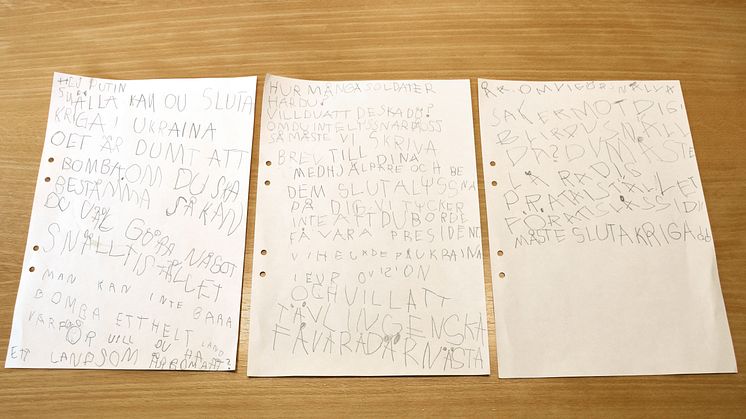 HEJ PUTIN
SNÄLLA KAN DU SLUTA
KRIGA I UKRAINA
DET ÄR DUMT ATT
BOMBA OM DU SKA
BESTÄMMA SÅ KAN
DU VÄL GÖRA NÅGOT
SNÄLLT ISTÄLLET
MAN KAN INTE BARA
BOMBA ETT HELT LAND
VARFÖR VILL DU HA
ETT LAND SOM ÄR BOMBAT?
HUR MÅNGA SOLDATER
HAR DU?
VILL DU ATT DE SKA DÖ?
OM DU INTE LYSSNAR PÅ OSS
SÅ MÅSTE VI SKRIVA
BREV TILL DINA
MEDHJÄLPARE OCH BE
DEM SLUTA LYSSNA
PÅ DIG. VI TYCKER
INTE ATT DU BORDE
FÅ VARA PRESIDENT
VI HEJADE PÅ UKRAINA
I EUROVISION
OCH VILL ATT
TÄVLINGEN SKA
FÅ VARA DÄR NÄSTA
ÅR. OM VI GÖR SNÄLLA
SAKER MOT DIG
BLIR DU SNÄLL
DÅ? DU MÅSTE
LÄRA DIG
PRATA ISTÄLLET
FÖR ATT SLÅSS! DU
MÅSTE SLUTA KRIGA